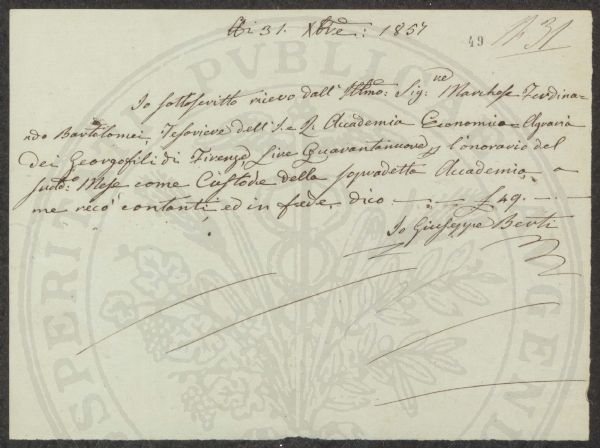 Di 31. Xbre: 1857
49 N 31
Io sottoscritto ricevo dall' Illmo: Signe Marchese Ferdina=
ndo Bartolomei, Tesoriere dell' I. e R. Accademia Economico=Agraria
dei Georgofili di Firenze, Lire Quarantanuove p l'onorario del
sudto: Mese come Custode della sopradetta Accademia, a
me reco contanti, ed in fede, dico — £ 49. —
Io Giuseppe Berti
PROSPERITATI PVBLICAE AVGENDAE